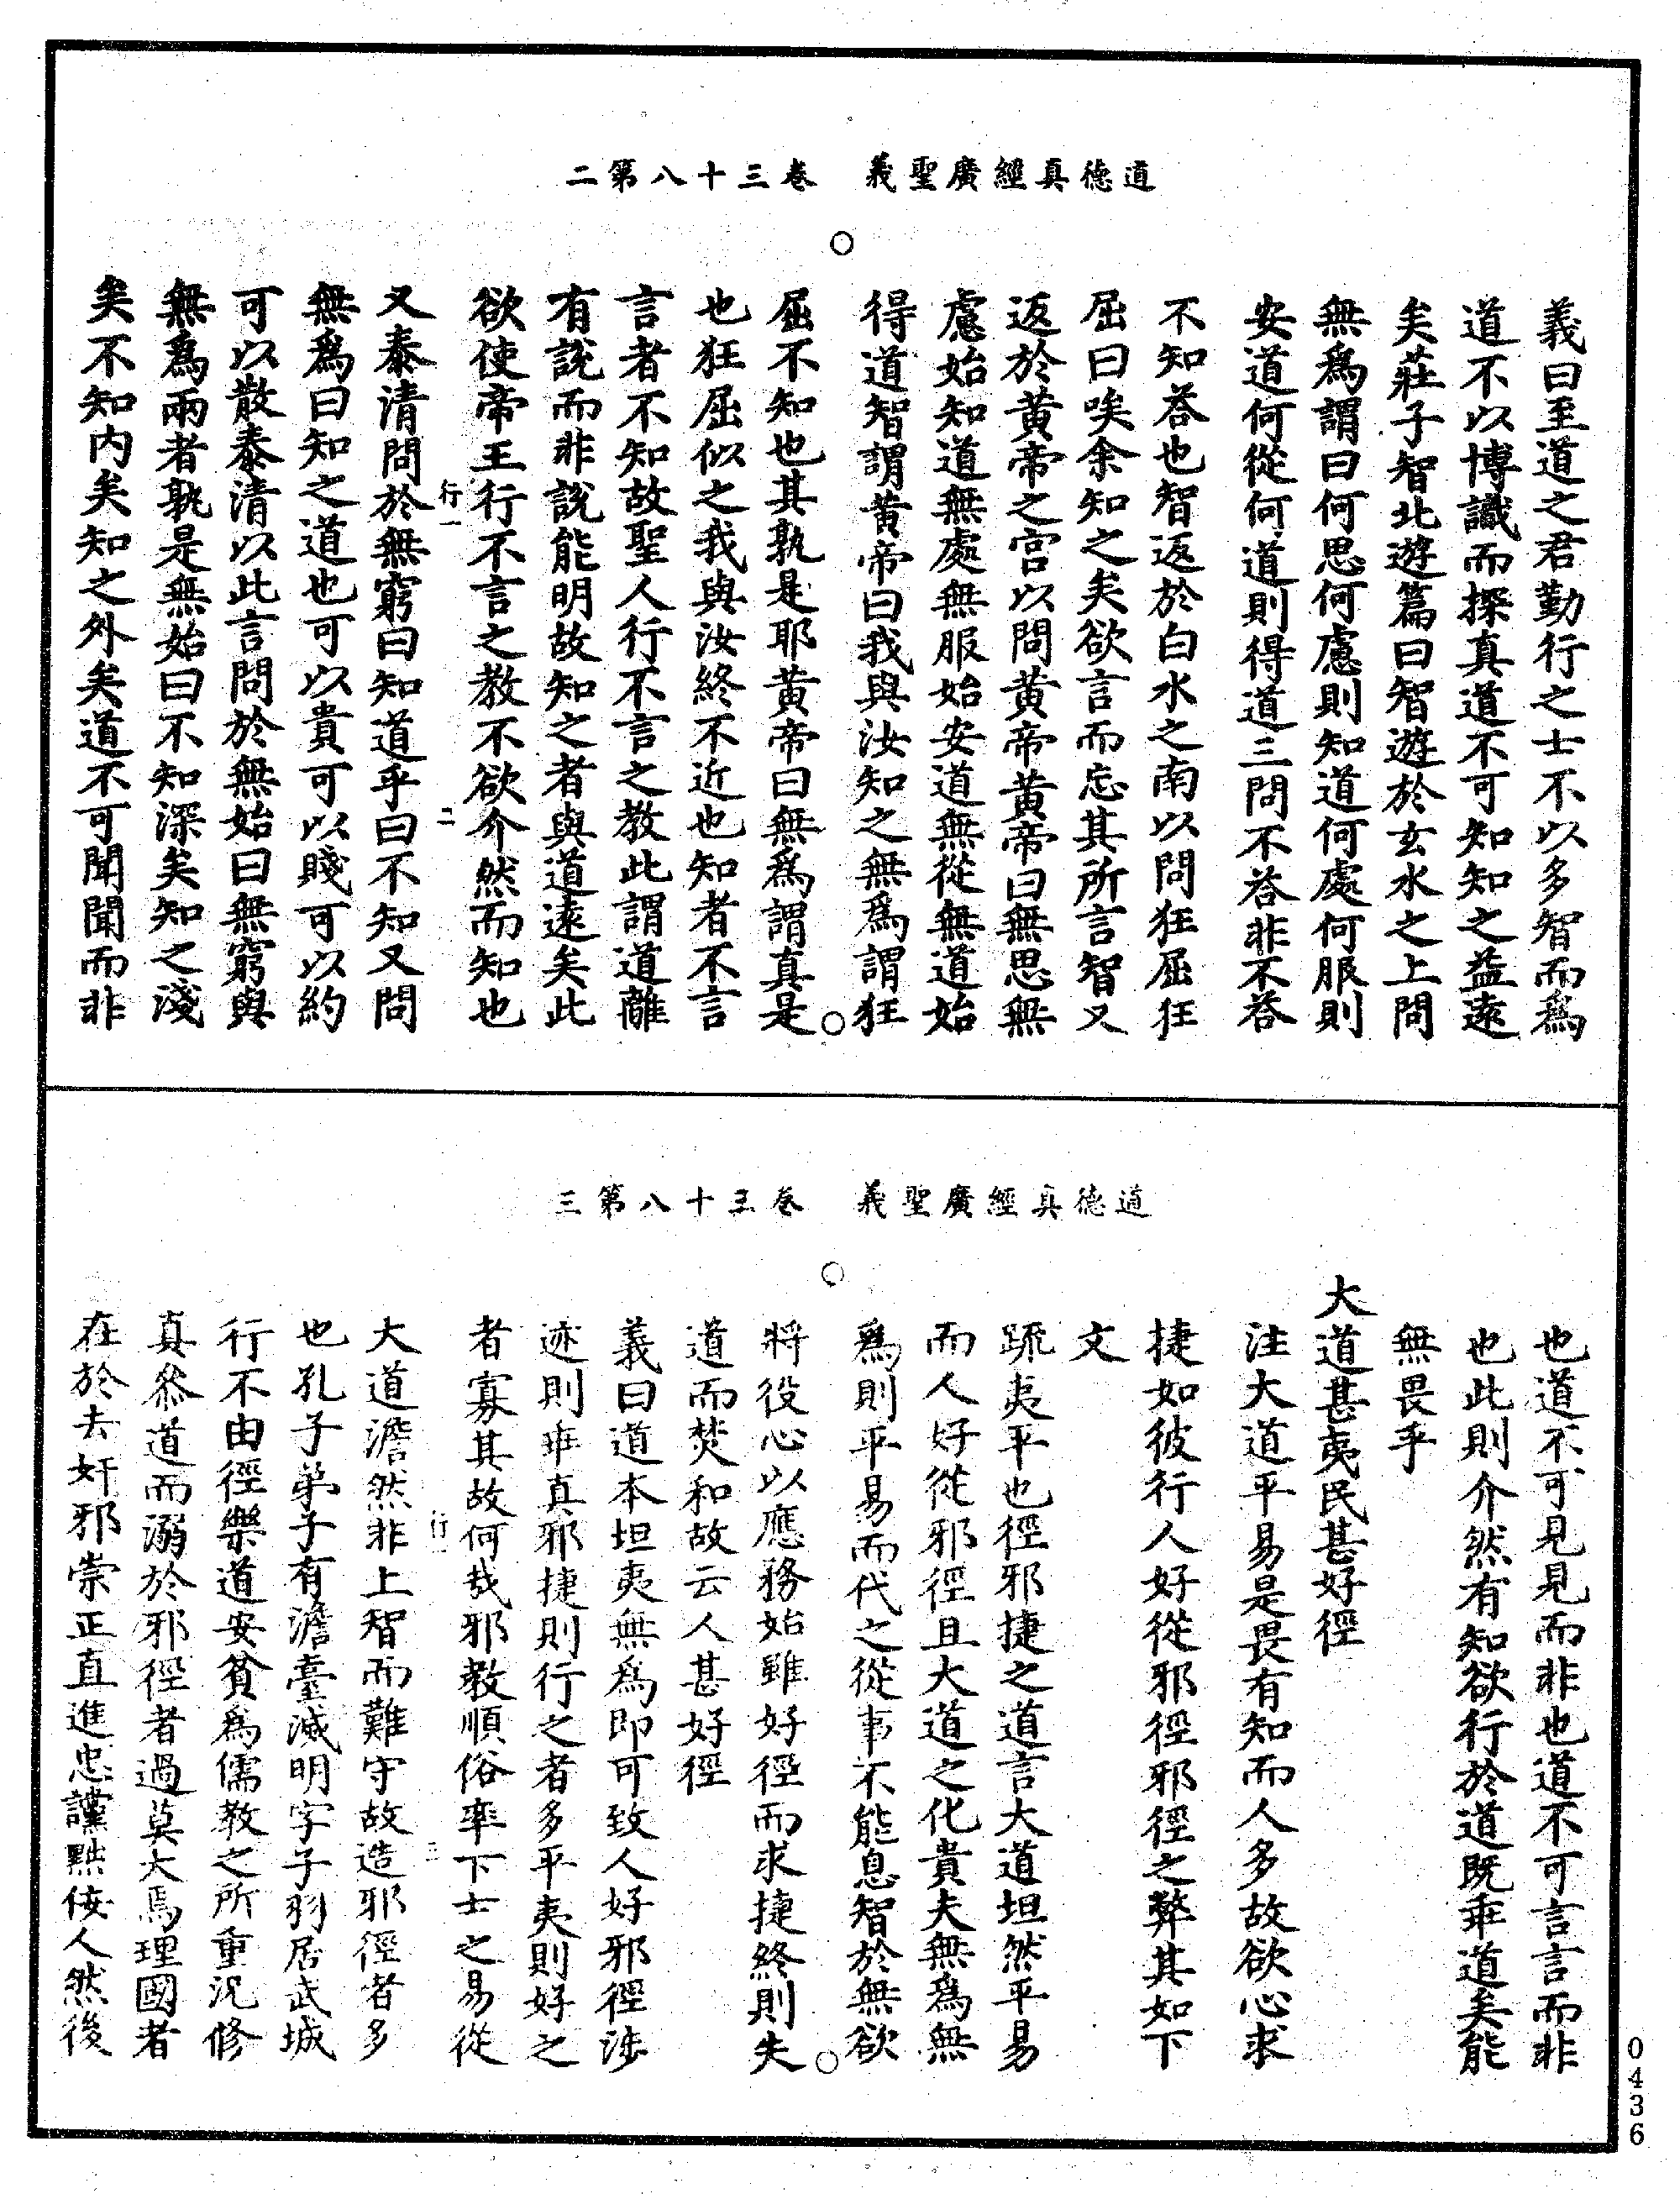 道德真經廣聖義　卷三十八第二
義曰至道之君勤行之士不以多智而為
道不以博識而探真道不可知知之益遠
矣莊子智北遊篇曰智遊於玄水之上問
無為謂曰何思何慮則知道何處何服則
安道何從何道則得道三問不荅非不荅
不知荅也智返於白水之南以問狂屈狂
屈曰唉余知之矣欲言而忘其所言智又
返於黃帝之宮以問黃帝黃帝曰無思無
慮始知道無處無服始安道無從無道始
得道智謂黃帝曰我與汝知之無為謂狂
屈不知也其孰是耶黃帝曰無為謂真是
也狂屈似之我與汝終不近也知者不言
言者不知故聖人行不言之教此謂道離
有說而非說能明故知之者與道遠矣此
欲使帝王行不言之教不欲介然而知也
行一
二
又泰清問於無窮曰知道乎曰不知又問
無為曰知之道也可以貴可以賤可以約
可以散泰清以此言問於無始曰無窮與
無為兩者孰是無始曰不知深矣知之淺
矣不知内矣知之外矣道不可聞聞而非
道德真經廣聖義　卷三十八第三
也道不可見見而非也道不可言言而非
也此則介然有知欲行於道既乖道矣能
無畏乎
大道甚夷民甚好徑
注大道平易是畏有知而人多故欲心求
捷如彼行人好從邪徑邪徑之弊其如下
文
䟽夷平也徑邪捷之道言大道坦然平易
而人好從邪徑且大道之化貴夫無為無
為則平易而代之從事不能息智於無欲
將役心以應務始雖好徑而求捷終則失
道而焚和故云人甚好徑
義曰道本坦夷無為即可致人好邪徑涉
迹則乖真邪捷則行之者多平夷則好之
者寡其故何哉邪教順俗率下士之易從
行一
三
大道澹然非上智而難守故造邪徑者多
也孔子弟子有澹臺滅明字子羽居武城
行不由徑樂道安貧為儒教之所重況修
真叅道而溺於邪徑者過莫大焉理國者
在於去奸邪崇正直進忠讜黜佞人然後
0436